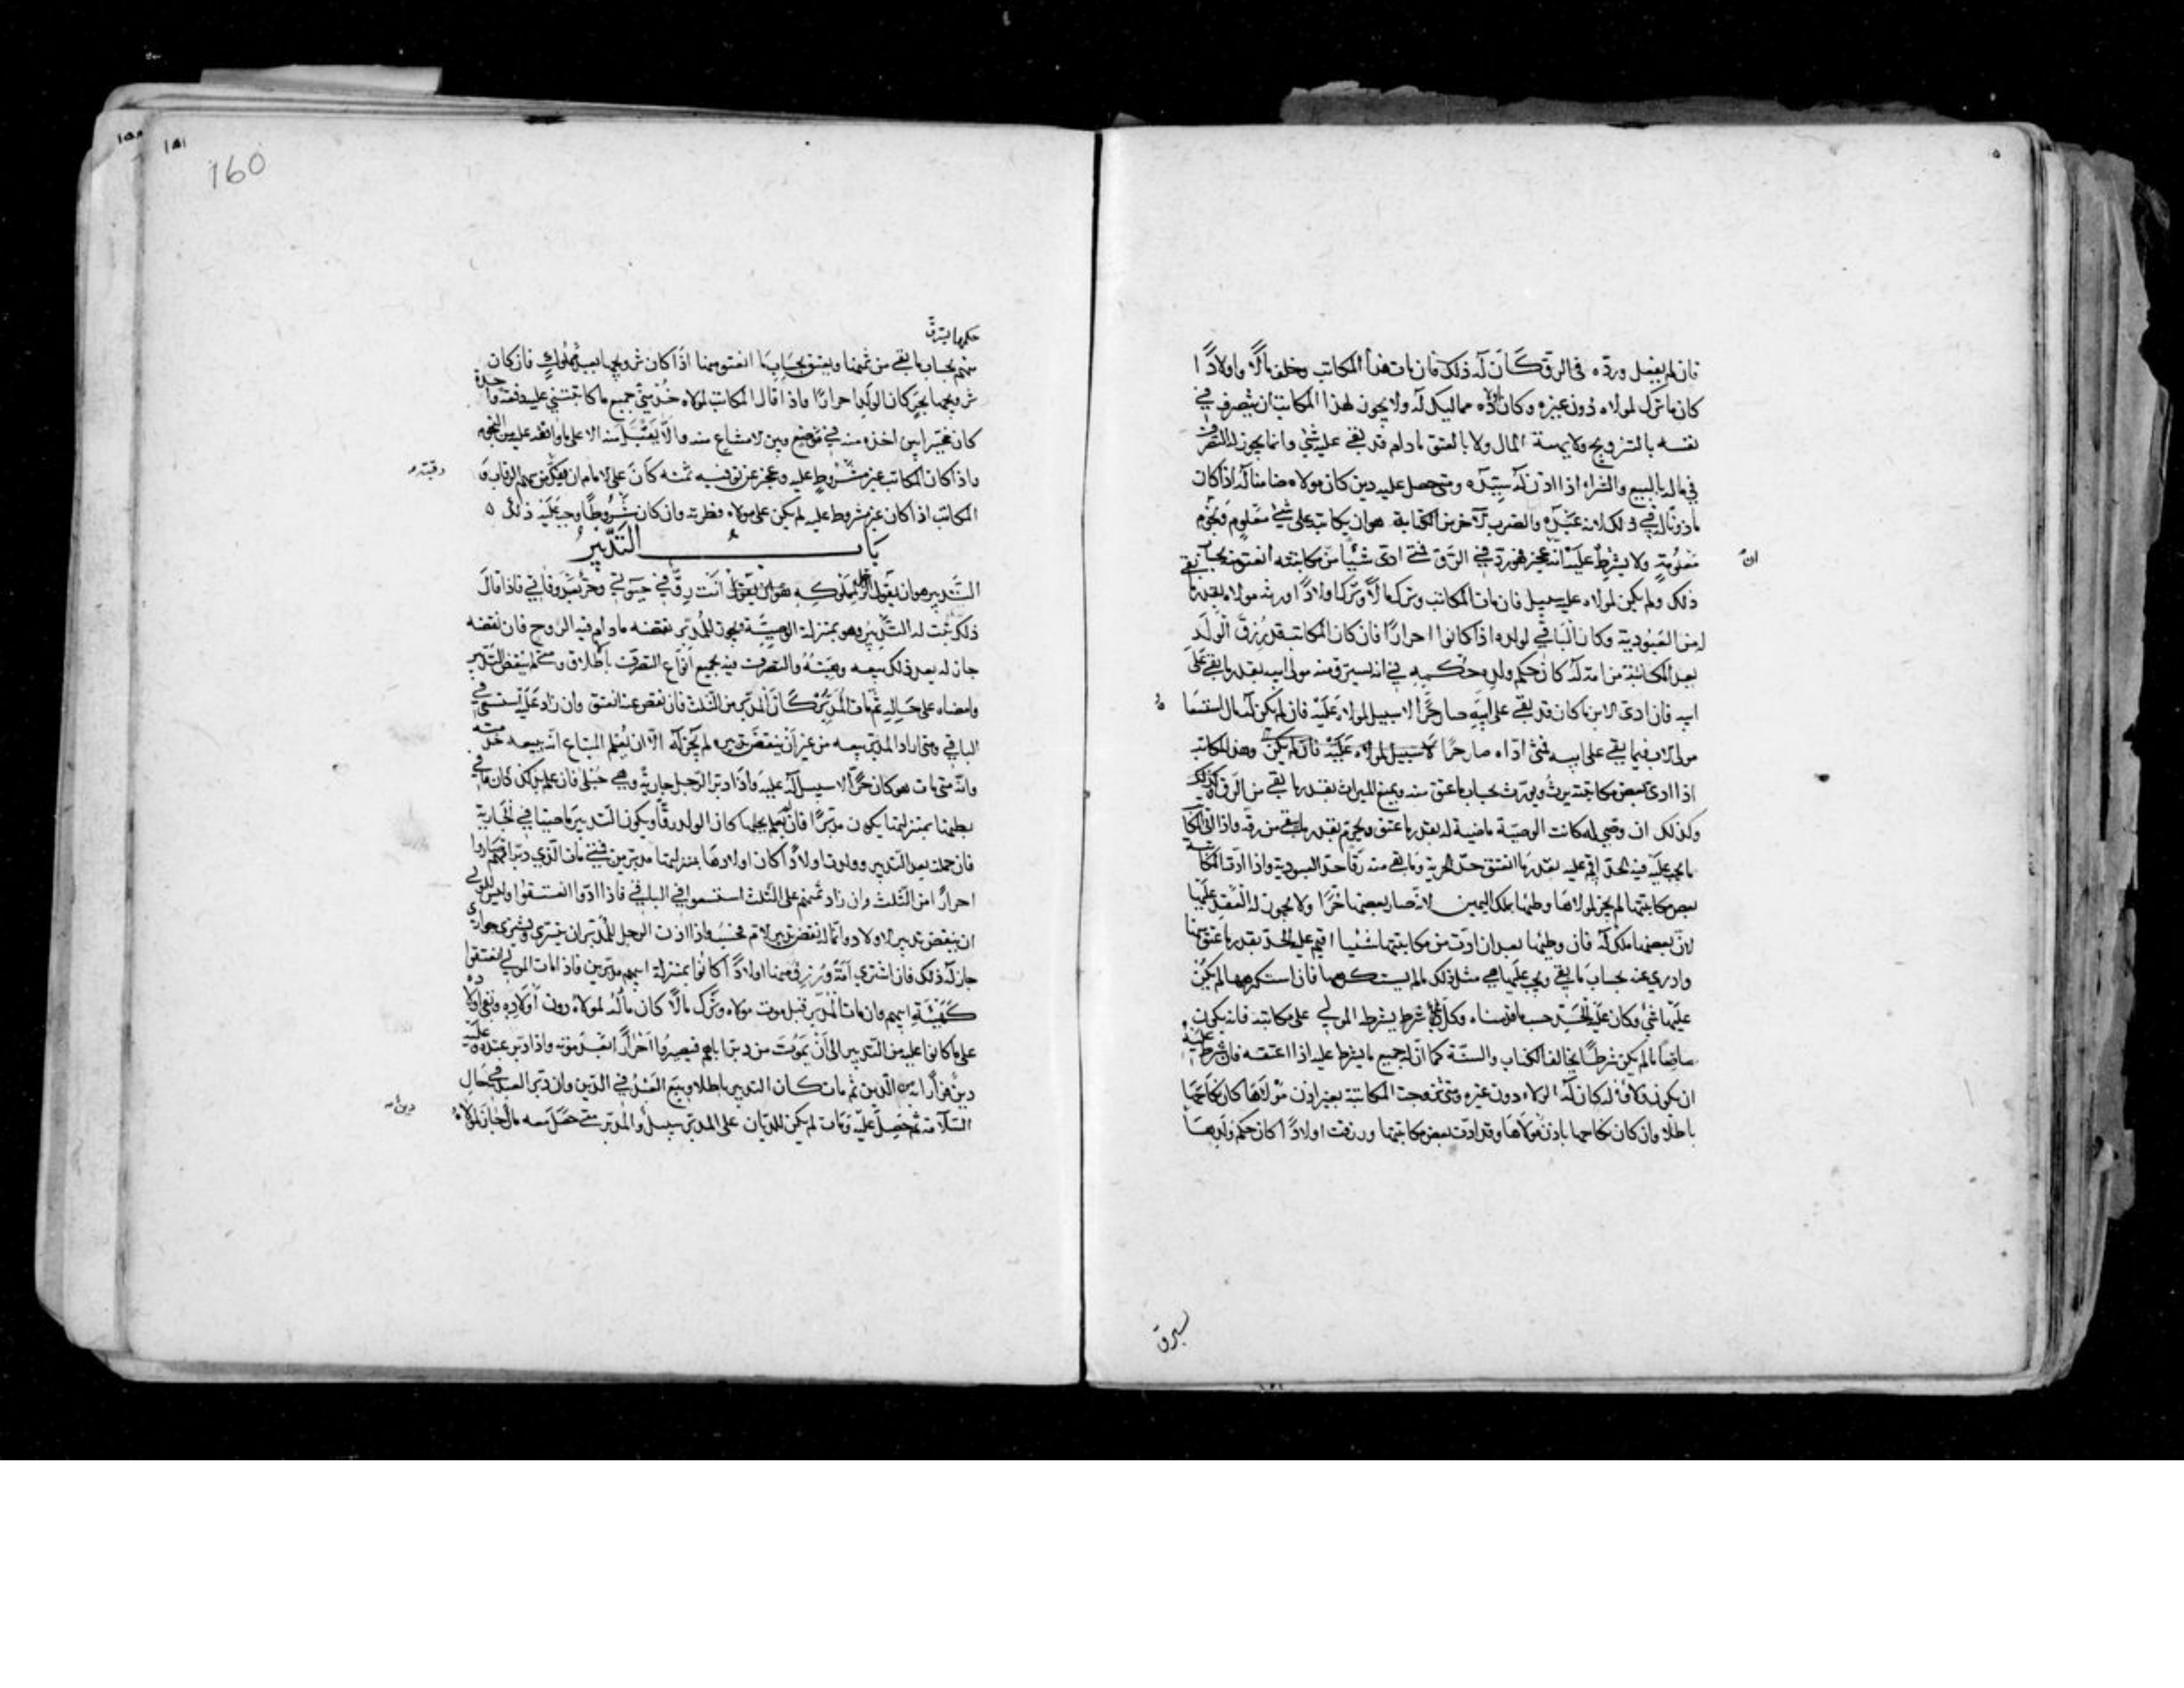 فان لم يفعل وردّه في الرق كَانَ له ذلك فان مات هذا المكاتب وخلف مالًا واولادًا
كان ما ترك لمولاه دُون غيره وكان اولاده مماليك له ولا يجوز لهذا المكاتب ان يتصرف في
نفسه بالتزويج ولا بهبة المال ولا بالعتق ما دام قد بقي عليه شيٌ وانما يجوز له التصرف
في ماله بالبيع والشراء اذا اذن له سيّده ومتى حصل عليه دين كان مولاه ضامنا له اذا كان
ماذونًا له في ذلك لانه عَبْدُه والضرب الآخر من الكتابة هو ان يكاتبه على شيٍ معْلومٍ ونجُومٍ
مَعْلُومَةٍ ولا يشرط عليه انّه ان عجز فهو ردّ في الرّق فمتى ادى شيئًا من مكاتبته انعتق منه بحساب
ذلك ولم يكن لمولاه عليه سبيل فان مات المكاتب وترك مالًا وترك اولادًا ورثه مولاه بقدر ما بقي
له من العَبُودية وكان الباقي لولده اذا كانوا احرارًا فان كان المكاتب قد رُزِقَ الولَد
بعد المكاتبة من امة له كان حكم ولده حُكمه في انه يسترق منه مولى ابيه بقدر ما بقي عَلَى
ابيه فان ادى الابن ما كان قد بقي على ابيْهِ صار حُرًّا لا سبيل لمولاه عَلَيْه فان لم يكن له مال استسعاه
مولى الاب فيما بقي على ابيه فمتى ادّاه صار حرًا لا سبيل لمولاه عليه فان لم يكن وهذا المكاتب
اذا ادى بعض مكاتبته يرث ويورّث بحساب ما عتق منه ويمنع الميراث بقدر ما بقي من الرق وكذلك
وكذلك ان وُصّي له كانت الوصيّة ماضية له بقدر ما عتق ويحرم بقدر ما بقي من رقه واذا اتى المكاتب
ما يجب عليه فيه الحدّ اقيم عليه بقدر ما انعتق حدّ الحرية وما بقي منه رقّا حدّ العبودية واذا ادّت المكاتبة
بعض مكاتبتها لم يجز لمولاها وطئها بملك اليمين لانّه صار بعضها حُرًّا ولا يجوز له العَقْد عليها
لانّ بعضها ملك له فان وطئها بعد ان ادّت من مكاتبتها شيئا اقيم عليه الحدّ بقدر ما عتق منها
وادري عنه بحساب ما بقي ويجب عليها هي مثل ذلك ما لم يستكرهها فان استكرهها لم يكُنْ
عليها شيٌ وكان عليْه الحَدّ حسب ما قدمناه وكلّ شرط يشرط المولى على مكاتبه فانه يكون
ماضيًا ما لم يكن شرطًا يخالف الكتاب والسنّة كما انّ له جميع ما يشرط عليه اذا اعتقه فان شرط عليْهِ
ان يكون ولاؤه له كان له الولاء دون غيره ومتى تزوجت المكاتبة بغير اذن مَوْلاهَا كان نكاحُهَا
باطلا وان كان نكاحها باذن مَوْلاهَا وقد ادّت بعض مكاتبتها ورزقت اولادًا كان حكم ولدهَا
انّ
سترق
١٥٠
١٥١
160
حكمها يسترق
منهم بحساب ما بقي من ثمنها ويعتق بحسَابِ مَا انعتق منها اذَا كان تزويجها بعبدٍ مملُوكٍ فان كان
تزويجها بحرٍّ كان الولَد احرارًا واذا قال المكاتب لمولاه خُذ منّي جميع ما كاتبتني عليه دفعة واحدة
كان مخيّرا بين اخذه منه في موْضع وبين الامتناع منه والّا يَقبَل منه الا على ما وافقه عليه من النجوم
واذا كان المكاتب غير مشْرُوطٍ عليه وعجز عن توفيه ثمنه كَانَ على الامام ان يفكّ رقبته من سهم الرقاب و
المكاتب اذا كان غير مشروط عليه لم يكن على مولاه فطرته وان كان مشْرُوطًا وجب عَلَيْه ذلك ٥
باب التَدبيرُ
التَّدبير هو ان يقول الرجل لمملوكِهِ انْت رِقٌّ في حيوتي وحرٌّ بعْد وفاتي فاذا قالَ
ذلك ثبت له التَّدبيرُ وهو بمنزلة الوصيّة يجوز للمُدبّر نقضه ما دام فيه الروح فان نقضه
جاز له بعد ذلك بيعه وهبَتُهُ والتصرف فيه بجميع انواع التصرّف باطلاق ومتى لم ينقض التّدبير
وامضاه على حَالِهِ ثمّ مات المُدَبِّر كَانَ المُدبّر من الثلث فان نقص عنه انعتق وان زاد عَلَيْه استسعي في
الباقي ومتى اراد المدبّر بيعه من غير اَنْ ينقضَ تدبيره لم يَجُز له الّا ان يُعْلم المبتاع انّه يبيعه خدمته
وانّه متى مات هو كان حُرًّا لا سبيل له عليه وَاذَا دبّر الرّجل جارِيةً وهي حُبْلى فان علم بذلك كان ما في
بطنها بمنزلتها يكون مدبّرًا فان لم يعلم بحبلها كان الولد رقًّا ويكون التّدبير ماضيا في الجارية
فان حملت بعد التّدبير وولدت اولادًا كان اولادها بمنزلتها مدبّرين فمتى مات الّذي دبّر امّهم صاروا
احرارًا من الثّلث وان زاد ثمنهم على الثّلث استسعوا في الباقي فاذا ادّوا انعتقوا وليس للمولى
ان ينقض تدبير الاولاد وانّما له نقض تدبير الام فحَسْبُ واذا اذن الرجل لمُدبّره ان يتسرّى ويشتري جواري
جاز له ذلك فان اشترى اَمَةً ورُزِق منها اولادًا كانُوا بمنزلة ابيهم مدبّرين فاذا مات المولى انعتقوا
كهَيْئَةِ ابيهم وان مات المُدَبَّر قبل موت مولاه وتَرَك مالًا كان مالُهُ لمولاهُ دون اَوْلادِه وبَقِي اولاده
على ما كانوا عليه من التّدبير الى اَنْ يَمُوتَ من دبّر اباهم فيصيرُوا اَحْرَارًا بَعْدَ مَوْته واذا دبّر عبْدَه وعلَيْه
دينٌ فرارًا به من الدّين ثم مات كان التدبير باطلا وبِيعَ العَبْدُ في الدّين وان دبّر العبْد في حَالِ
السّلامة ثم حَصَلَ عليْه دين وَمَات لم يكن للديّان على المدبّر سبيلٌ والمُدبّر متى حَصَل معه مالٌ جاز لمولاهُ
رقبته
دين